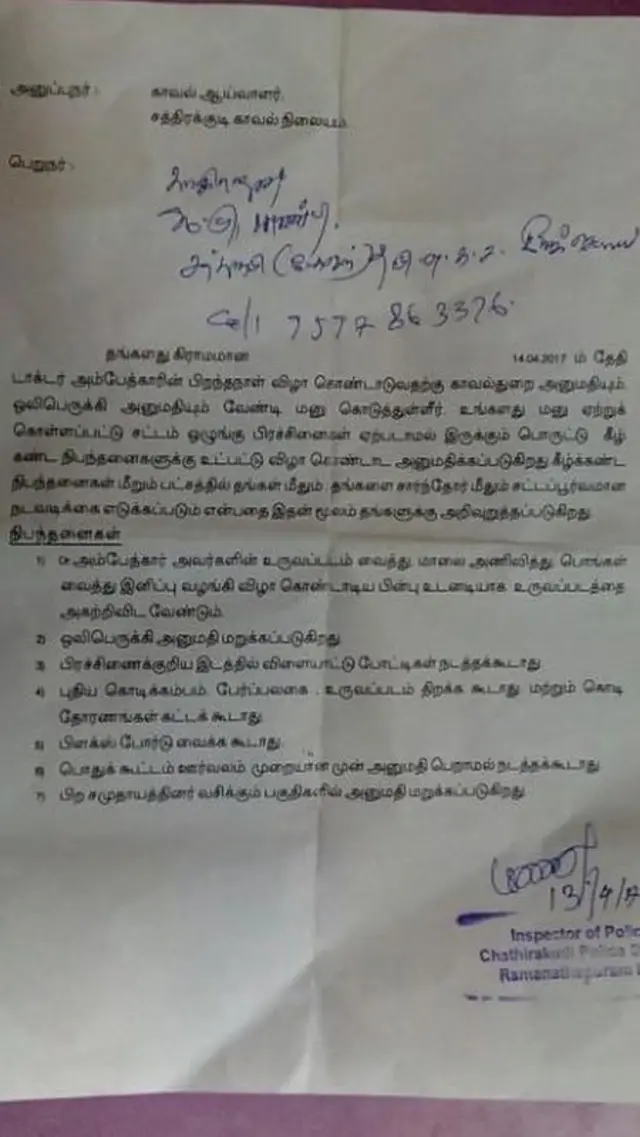 அனுப்புநர் :-
காவல் ஆய்வாளர்,
சத்திரக்குடி காவல் நிலையம்.
பெறுநர் :-
Cell 7577 863376.
தங்களது கிராமமான 14.04.2017 ம் தேதி
டாக்டர் அம்பேத்காரின் பிறந்தநாள் விழா கொண்டாடுவதற்கு காவல்துறை அனுமதியும்,
ஒலிபெருக்கி அனுமதியும் வேண்டி மனு கொடுத்துள்ளீர். உங்களது மனு ஏற்றுக்
கொள்ளப்பட்டு சட்டம் ஒழுங்கு பிரச்சினைகள் ஏற்படாமல் இருக்கும் பொருட்டு கீழ்
கண்ட நிபந்தனைகளுக்கு உட்பட்டு விழா கொண்டாட அனுமதிக்கப்படுகிறது கீழ்க்கண்ட
நிபந்தனைகள் மீறும் பட்சத்தில் தங்கள் மீதும், தங்களை சார்ந்தோர் மீதும் சட்டப்பூர்வமான
நடவடிக்கை எடுக்கப்படும் என்பதை இதன் மூலம் தங்களுக்கு அறிவுறுத்தப்படுகிறது.
நிபந்தனைகள்
1) அம்பேத்கார் அவர்களின் உருவப்படம் வைத்து, மாலை அணிவித்து, பொங்கள்
வைத்து இனிப்பு வழங்கி விழா கொண்டாடிய பின்பு உடனடியாக உருவப்படத்தை
அகற்றிவிட வேண்டும்.
2) ஒலிபெருக்கி அனுமதி மறுக்கப்படுகிறது.
3) பிரச்சிணைக்குறிய இடத்தில் விளையாட்டு போட்டிகள் நடத்தக்கூடாது.
4) புதிய கொடிக்கம்பம், பேர்ப்பலகை , உருவப்படம் திறக்க கூடாது. மற்றும் கொடி
தோரணங்கள் கட்டக் கூடாது.
5) பிளக்ஸ் போர்டு வைக்க கூடாது.
6) பொதுக் கூட்டம் ஊர்வலம் முறையான முன் அனுமதி பெறாமல் நடத்தக்கூடாது.
7) பிற சமுதாயத்தினர் வசிக்கும் பகுதிகளில் அனுமதி மறுக்கப்படுகிறது.
13/4/17
Inspector of Polic
Chathirakudi Police S
Ramanathapuram